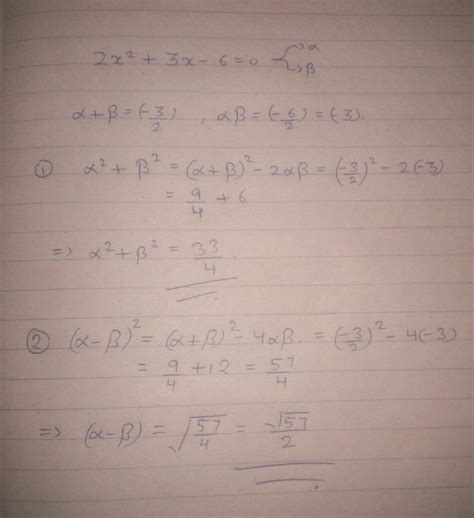 2x² + 3x - 6 = 0 { → α → β
α + β = (-3/2) , αβ = (-6/2) = (-3).
① α² + β² = (α + β)² - 2αβ = (-3/2)² - 2(-3)
= 9/4 + 6
⇒ α² + β² = 33/4.
② (α - β)² = (α + β)² - 4αβ. = (-3/2)² - 4(-3)
= 9/4 + 12 = 57/4
⇒ (α - β) = √57/4 = √57/2